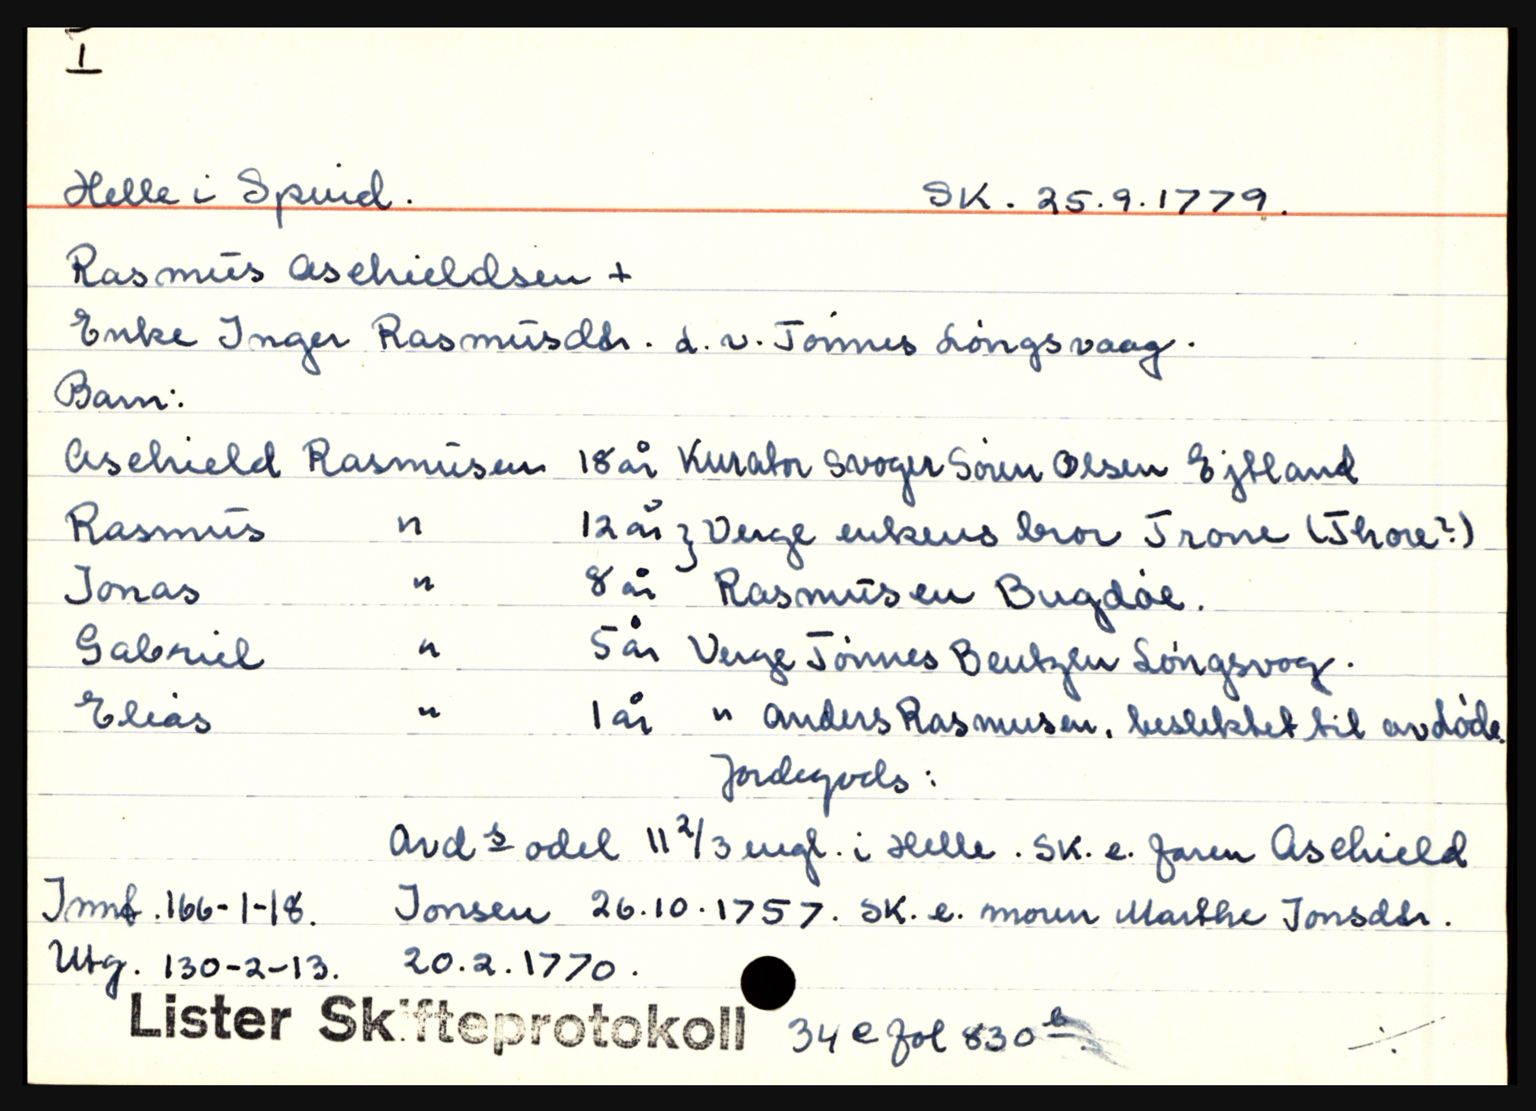 I
Helle i Spind. SK. 25.9.1779.
Rasmus Aschieldsen +
Enke Inger Rasmusdtr. L. v. Tönnes Löngsvaag.
Barn:
Aschield Rasmusen 18 år Kurator Svoger Sören Olsen Ejtland
Rasmus " 12 år } Verge enkens bror Trone (Thore?)
Jonas " 8 år Rasmusen Bugdöe.
Gabriel " 5 år Verge Tönnes Bentzen Löngsvog.
Elias " 1 år " Anders Rasmusen, beslektet til avdöde.
Jordegods:
Avds odel 11 2/3 engl. i Helle. SK. e. faren Aschield
Innf. 166-1-18. Jonsen 26.10.1757. SK. e. moren Marthe Jonsdtr.
Utg. 130-2-13. 20.2.1770.
Lister Skifteprotokoll 34 e fol 830 b